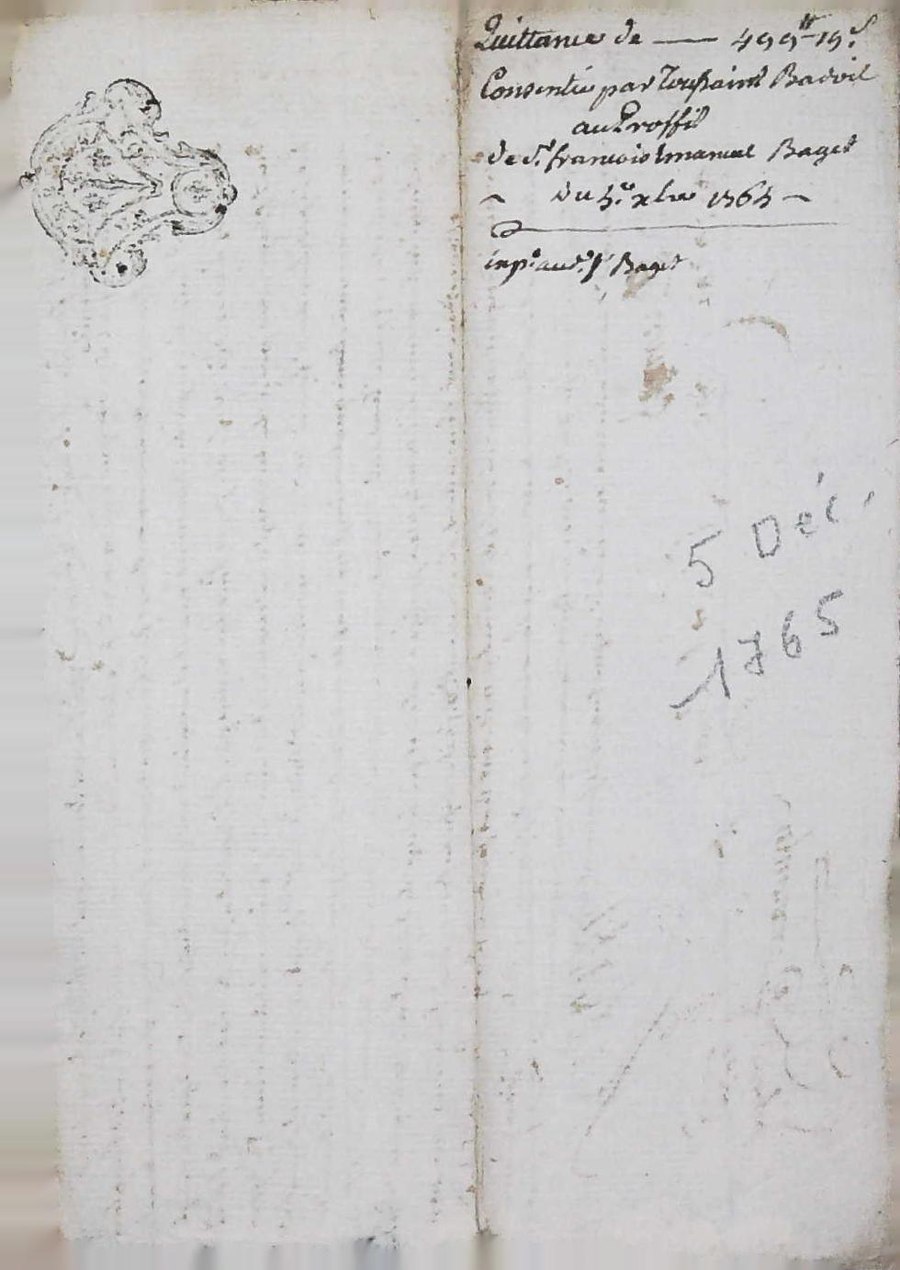 Quittance de —— 499tt-19s
Consentie par Toussaint Badoil
au Proffit
de Sr. francois Emanuel Baget
~ du 5e. xbre 1765 ~
inpo. aud. Sr Baget
5 Déc.
1765